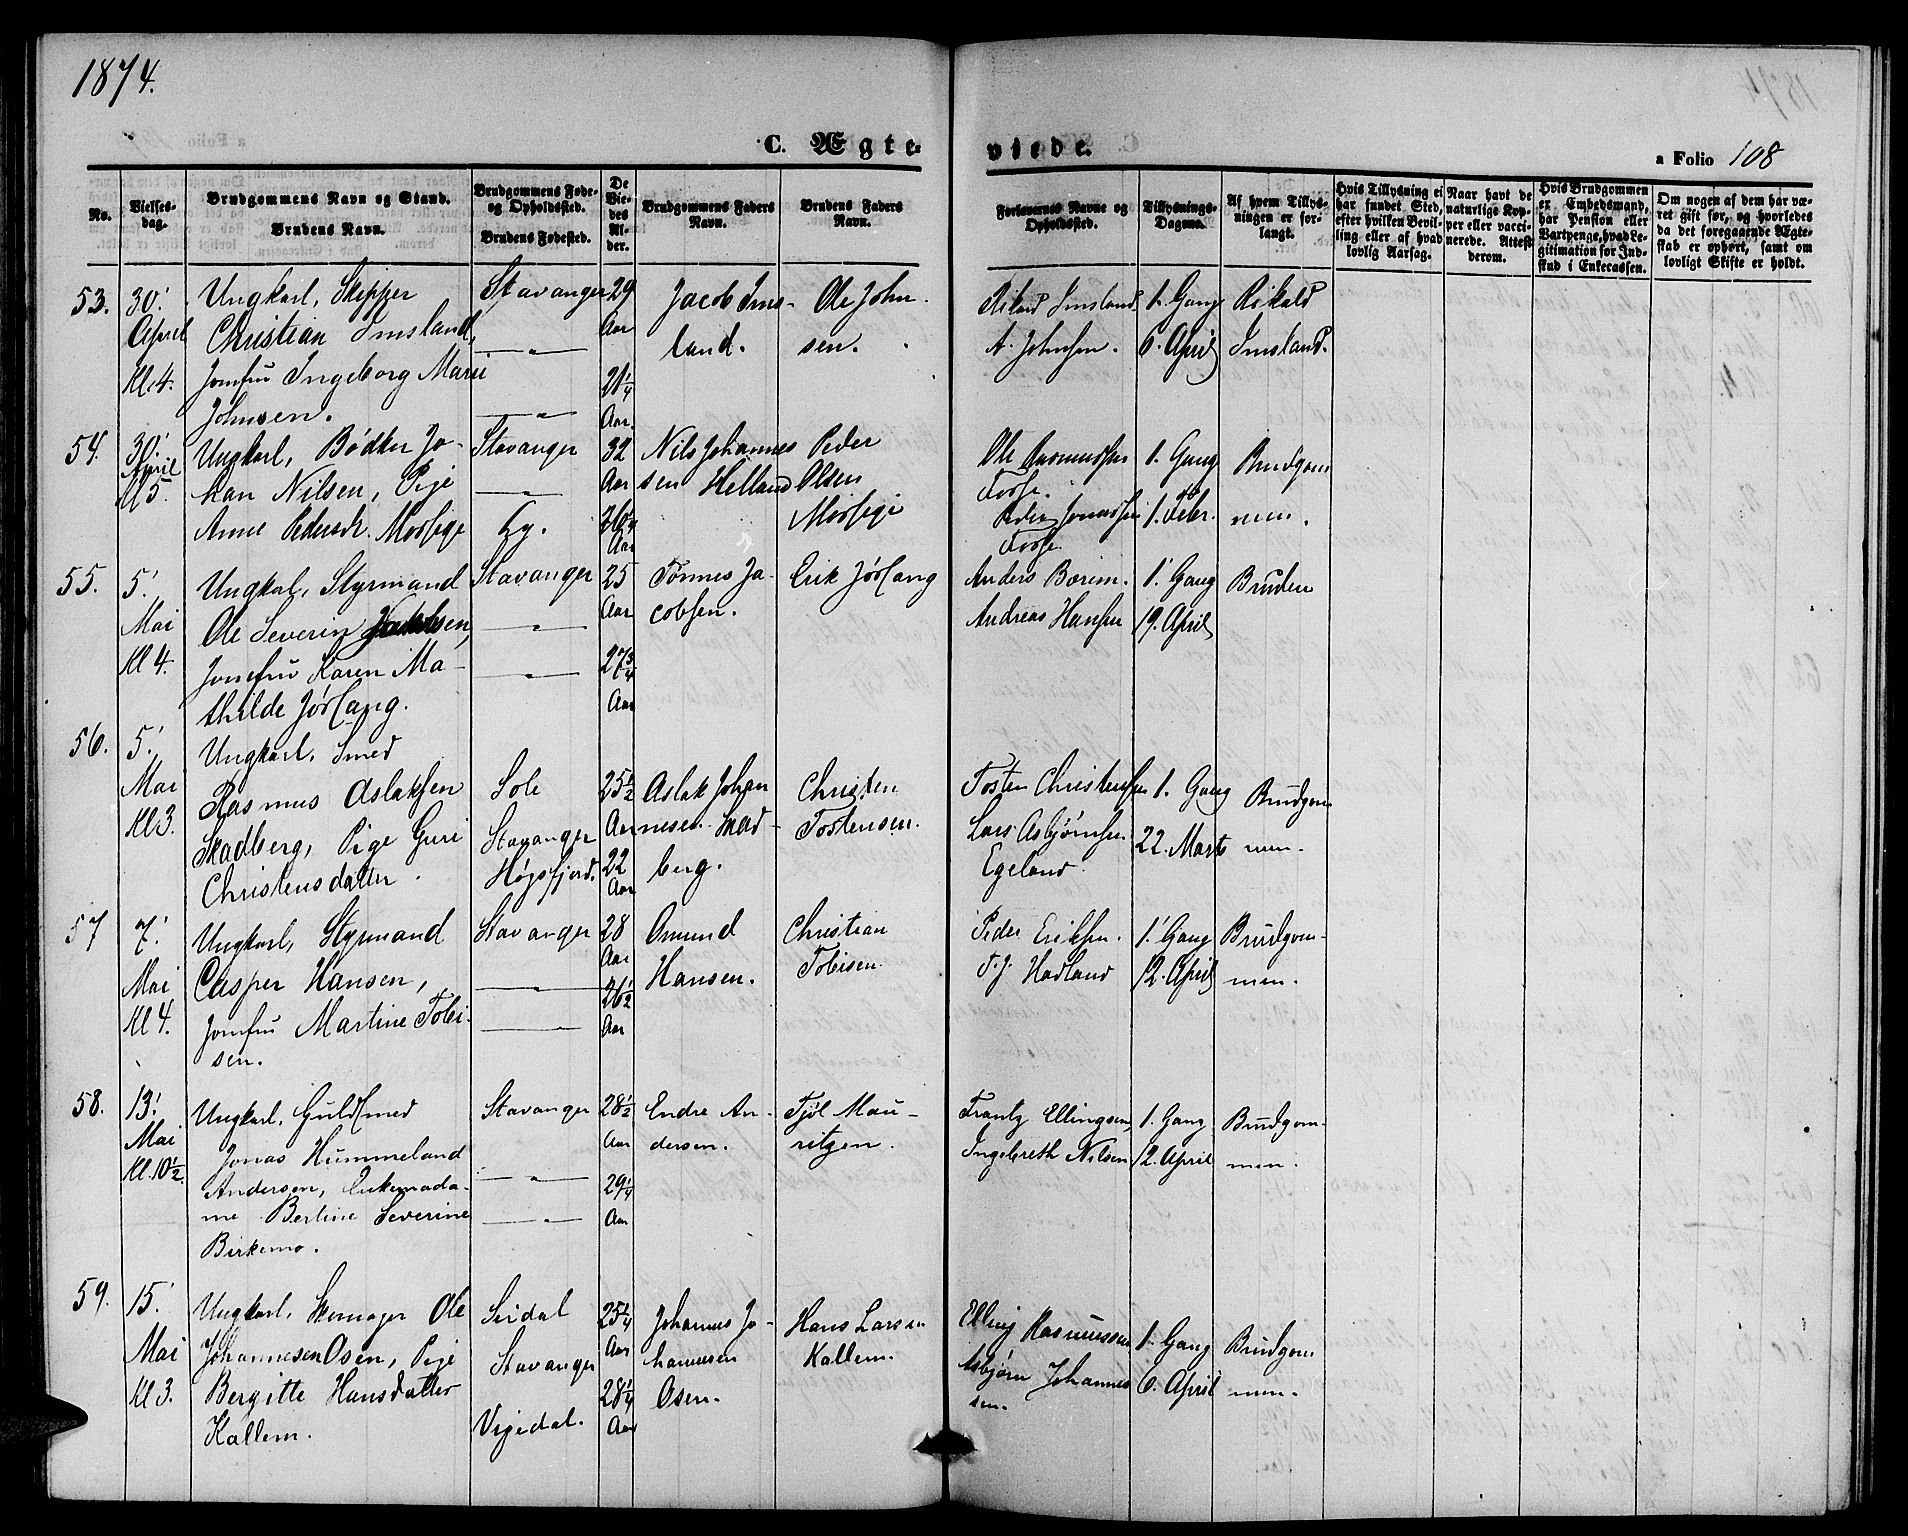 1874.
C. Ægteviede.
a Folio 108
No.
Vielsesdag.
Brudgommens Navn og Stand.
Brudens Navn.
Brudgommens Fødeog Opholdsted.
Brudens Fødested.
De Viedes Alder.
Brudgommens Faders Navn.
Brudens Faders Navn.
Forlovernes Navne og Opholdsted.
Tillysnings-Dagene.
Af hvem Tillysningen er forlangt.
Hvis Tillysning ei har fundet Sted, efter hvilken Bevilling eller af hvad lovlig Aarsag.
Naar havt de naturlige Kopper eller vaccinerede. Attest derom.
Hvis Brudgommen er Embedsmand, har Pension eller Vartpenge, hvad Legitimation for Indskud i Enkecassen.
Om nogen af dem har været gift før, og hvorledes da det foregaaende Ægteskab er ophørt, samt om lovligt Skifte er holdt.
53.
30.
April
Kl. 4.
Ungkarl, Skipper
Christian Imsland,
Jomfru Ingeborg Marie
Johnsen.
Stavanger
— " —
— " —
29
Aar
21 1/4
Aar.
Jacob Ims-
land.
Ole John
sen.
Rikard Imsland
A. Johnsen.
1. Gang
6. April
Rikald
Imsland.
54.
30.
April
Kl 5.
Ungkarl, Bødker Jo-
han Nilsen, Pige
Anne Pedersdr. Morsige
Stavanger
— " —
Hy.
32
Aar
Aar
Nils Johannes
sen Helland
Peder
Olsen
Morsige
Ole Rasmussen
Forse.
Peder Jonassen
Forse
1. Gang
1. Febr.
Brudgom
men.
55.
5.
Mai
Kl 4.
Ungkarl, Styrmand
Ole Severin Jacobsen,
Jomfru Karen Ma-
thilde Jørsang.
Stavanger
— " —
— " —
25
Aar
27 3/4
Aar
Tønnes Ja-
cobsen.
Erik Jørsang
Anders Bærem.
Andreas Hansen
1. Gang
19. April
Bruden
56.
5.
Mai
Kl 3.
Ungkarl, Smed
Rasmus Aslaksen
Skadberg, Pige Guri
Christensdatter.
Sole
Stavanger
Høgsfjord.
25 1/2
Aar
22
Aar
Aslak Johan
nesen Skad-
berg.
Christen
Tostensen.
Tosten Christensen
Lars Asbjørnsen
Egeland
1. Gang
22. Marts
Brudgom
men.
57
7.
Mai
Kl 4.
Ungkarl, Styrmand
Casper Hansen,
Jomfru Martine Tobi-
sen.
Stavanger
— " —
28
Aar
26 1/2
Aar
Omund
Hansen.
Christian
Tobisen.
Peder Eriksen.
T. J. Hadland
1. Gang
12. April
Brudgom-
men.
58.
13.
Mai
Kl. 10 1/2
Ungkarl, Guldsmed
Jonas Hummeland
Andersen, Enkemada-
me Bertine Severine
Birkemo.
Stavanger
— " —
— " —
28 1/2
Aar
29 1/4
Aar
Endre An-
dersen.
Tjøl Mau-
ritzen.
Frantz Ellingsen,
Ingebreth Nilsen
1. Gang
12. April
Brudgom-
men.
59.
15.
Mai
Kl 3.
Ungkarl, Skomager Ole
Johannesen Osen, Pige
Bergitte Hansdatter
Kallem.
Sirdal
Stavanger
Vigedal.
25 1/4
Aar
28 1/4
Aar
Johannes Jo-
hannesen
Osen.
Hans Larsen
Kallem.
Elling Rasmussen
Asbjørn Johannes
sen.
1. Gang
6. April
Brudgom
men.